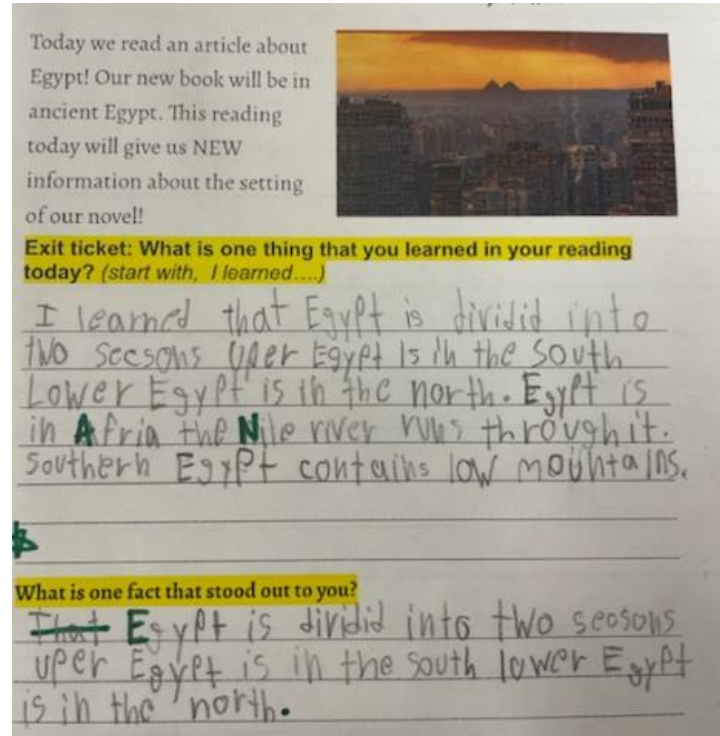 Today we read an article about
Egypt! Our new book will be in
ancient Egypt. This reading
today will give us NEW
information about the setting
of our novel!
Exit ticket: What is one thing that you learned in your reading
today? (start with, I learned....)
I learned that Egypt is dividid into
two secsons Uper Egypt is in the South
Lower Egypt is in the north. Egypt is
in Afria the Nile river runs through it.
Southern Egypt contains low mountains.
What is one fact that stood out to you?
That Egypt is dividid into two seosons
uper Egypt is in the south lower Egypt
is in the north.